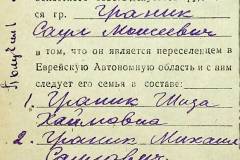 ся гр. Граник
Саул Моисеевич
в том, что он является переселенцем в
Еврейскую Автономную область и с ним
следует его семья в составе:
1. Граник Шида
Хаимовна
2. Граник Михаил
Саулович